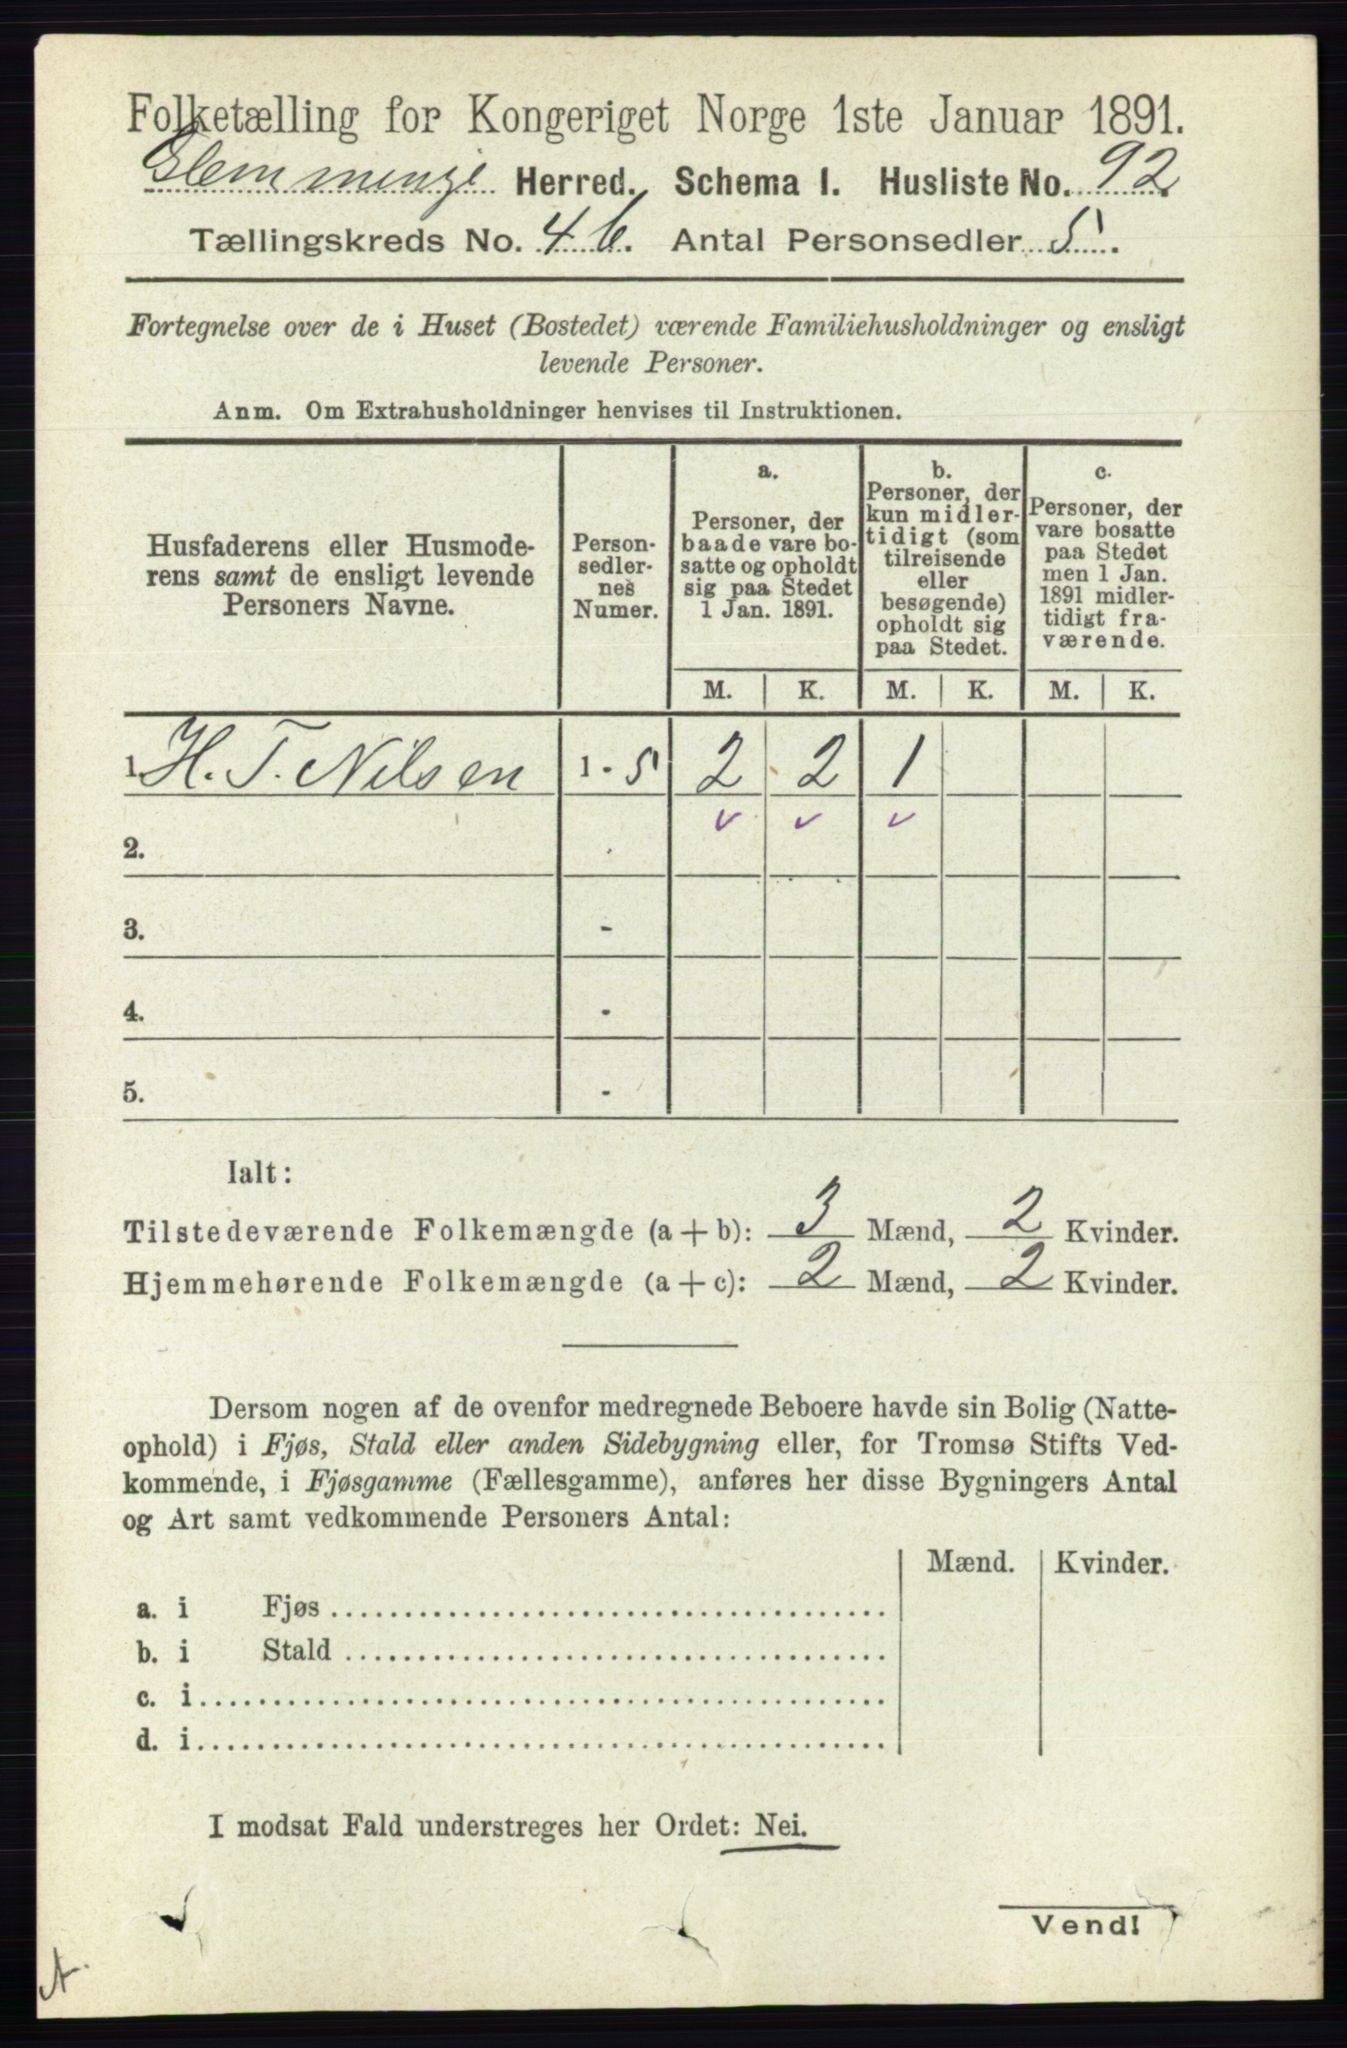 Folketælling for Kongeriget Norge 1ste Januar 1891.
Glemminge Herred. Schema 1. Husliste No. 92
Tællingskreds No. 4 b. Antal Personsedler 5.
Fortegnelse over de i Huset (Bostedet) værende Familiehusholdninger og ensligt
levende Personer.
Anm. Om Extrahusholdninger henvises til Instruktionen.
Husfaderens eller Husmode-
rens samt de ensligt levende
Personers Navne.
Person-
sedler-
nes
Numer.
a.
Personer, der
baade vare bo-
satte og opholdt
sig paa Stedet
1 Jan. 1891.
b.
Personer, der
kun midler-
tidigt (som
tilreisende
eller
besøgende)
opholdt sig
paa Stedet.
c.
Personer, der
vare bosatte
paa Stedet
men 1 Jan.
1891 midler-
tidigt fra-
værende.
M. K. M. K. M. K.
1. H. T. Nilsen 1 - 5 2 2 1
2.
3. -
4. -
5. -
Ialt:
Tilstedeværende Folkemængde (a + b): 3 Mænd, 2 Kvinder.
Hjemmehørende Folkemængde (a + c): 2 Mænd, 2 Kvinder.
Dersom nogen af de ovenfor medregnede Beboere havde sin Bolig (Natte-
ophold) i Fjøs, Stald eller anden Sidebygning eller, for Tromsø Stifts Ved-
kommende, i Fjøsgamme (Fællesgamme), anføres her disse Bygningers Antal
og Art samt vedkommende Personers Antal:
Mænd. Kvinder.
a. i Fjøs
b. i Stald
c. i
d. i
I modsat Fald understreges her Ordet: Nei.
Vend!